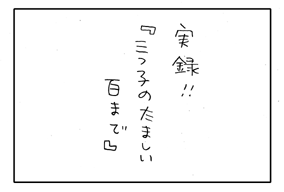 実録!!
『三つ子のたましい
百まで』